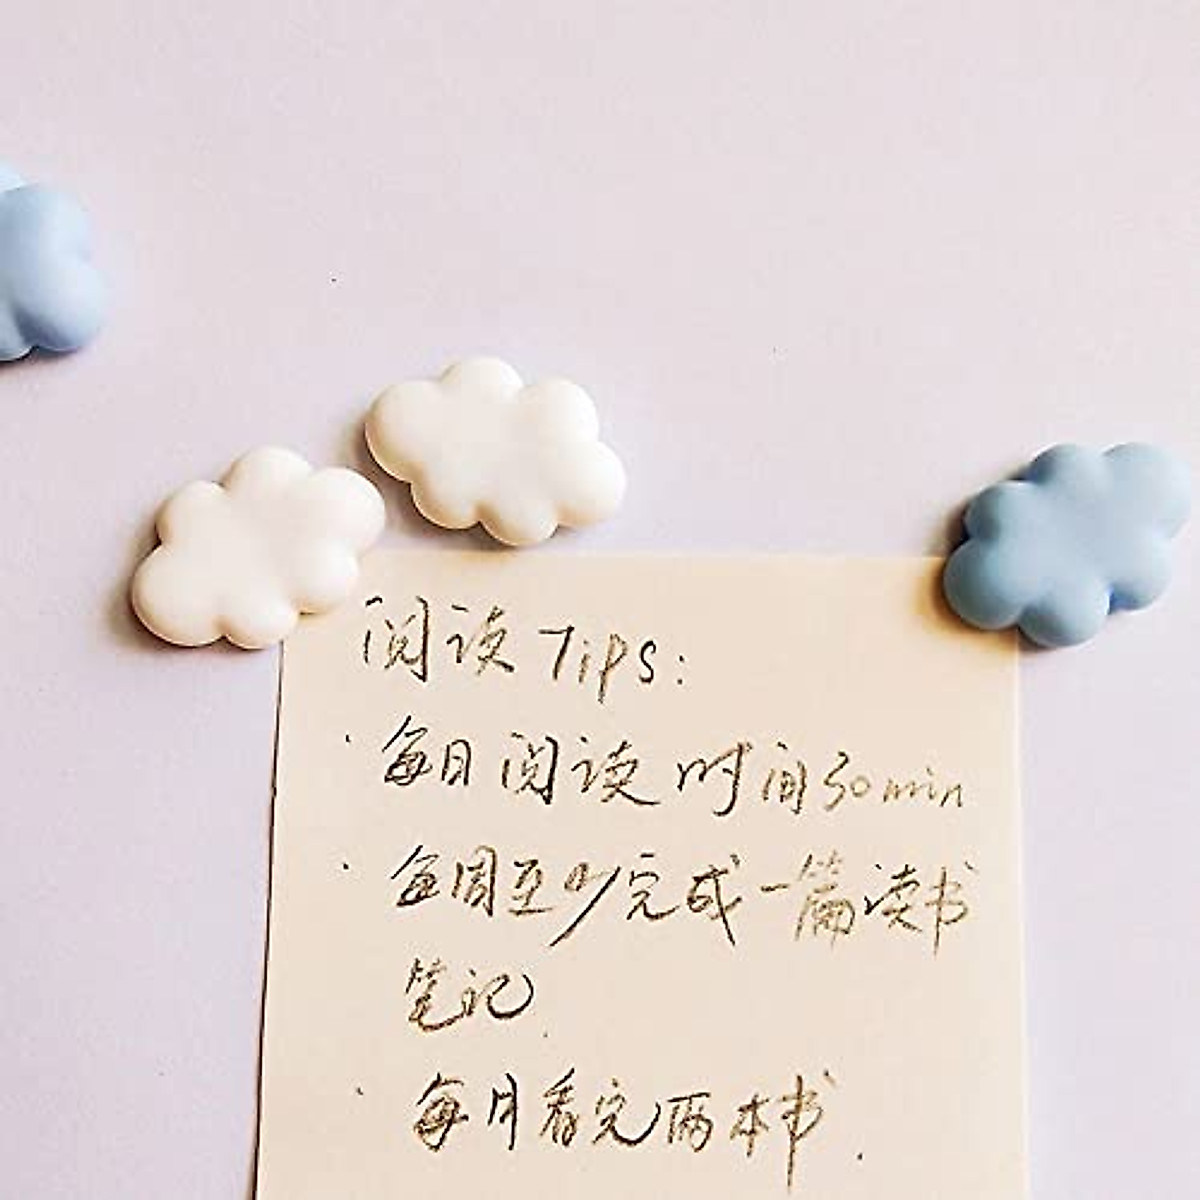 阅读Tips:
· 每日阅读时间30min
· 每周至少完成一篇读书
笔记.
· 每月看完两本书.